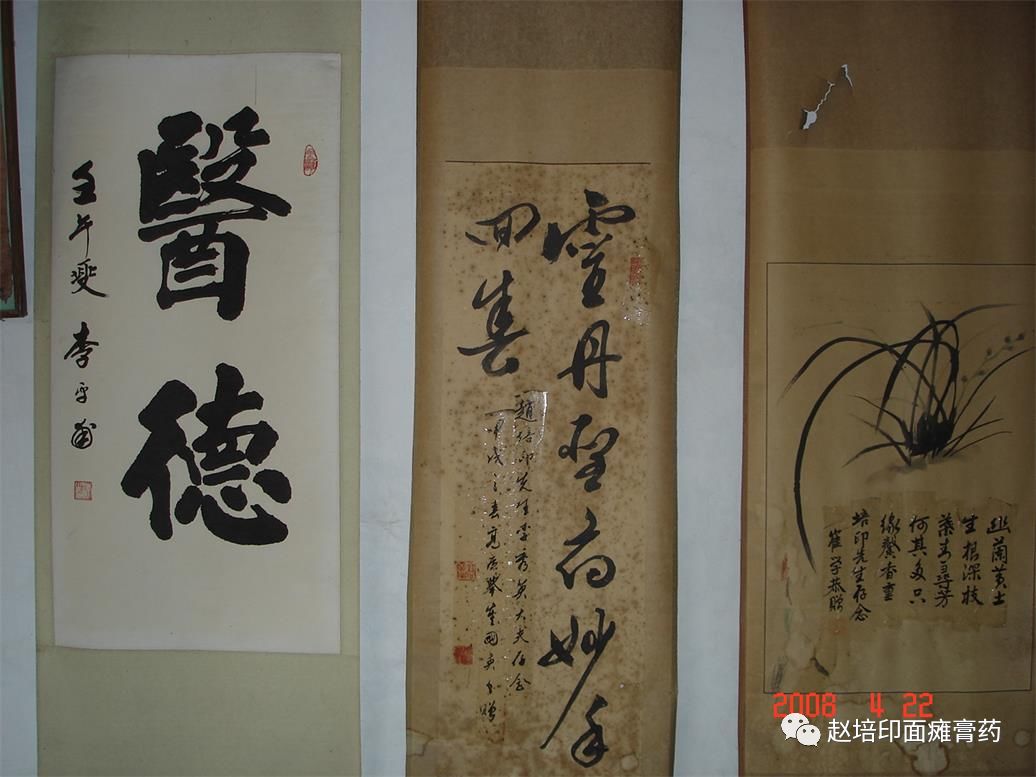 醫德
壬午夏 李
靈丹聖药妙手
回春
趙培印先生李秀英大夫存念
甲戌之春高
幽蘭黄土
生根深枝
葉秀尋芳
何其多只
缘馨香重
培印先生存念
崔学恭贈
2008 4 22
赵培印面瘫膏药